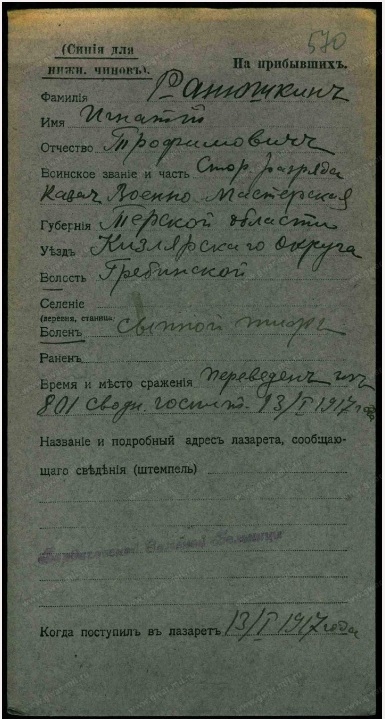 570
(Синія для
нижн. чиновъ).
На прибывшихъ.
Фамилія
Имя Игнатій
Отчество Трофимовичъ
Воинское званіе и часть Стор. разряда
Казач. Военно Мастерская
Губернія Терской области
Уѣздъ Кизлярскаго округа
Волость Гребинской
Селеніе
(деревня, станица)
Боленъ сыпной тифъ
Раненъ
Время и мѣсто сраженія переведенъ изъ
801 сводн. госпит. 13/I 1917 года
Названіе и подробный адресъ лазарета, сообщаю-
щаго свѣдѣнія (штемпель)
Когда поступилъ въ лазаретъ 13/I 1917 года